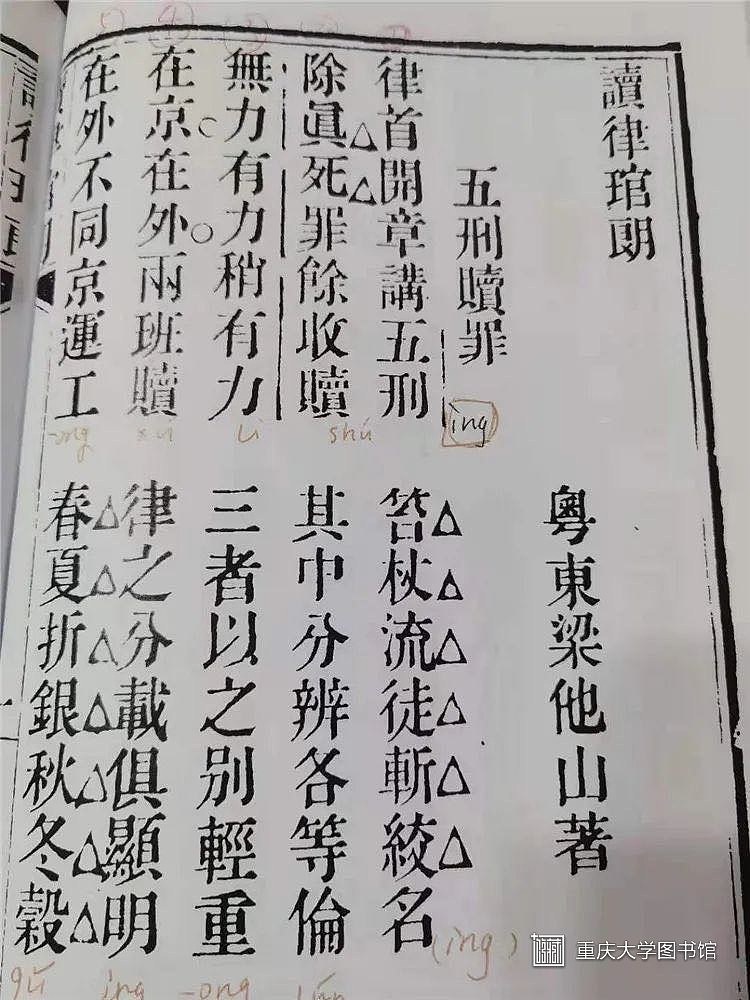 讀律琯朗
粵東梁他山著
五刑贖罪
ing
律首開章講五刑 笞杖流徒斬絞名
(ing)
除眞死罪餘收贖 其中分辨各等倫
shú
無力有力稍有力 三者以之別輕重
Li -ong
在京在外兩班贖 律之分載俱顯明
ing
在外不同京運工 春夏折銀秋冬穀
-ong gǔ
重庆大学图书馆